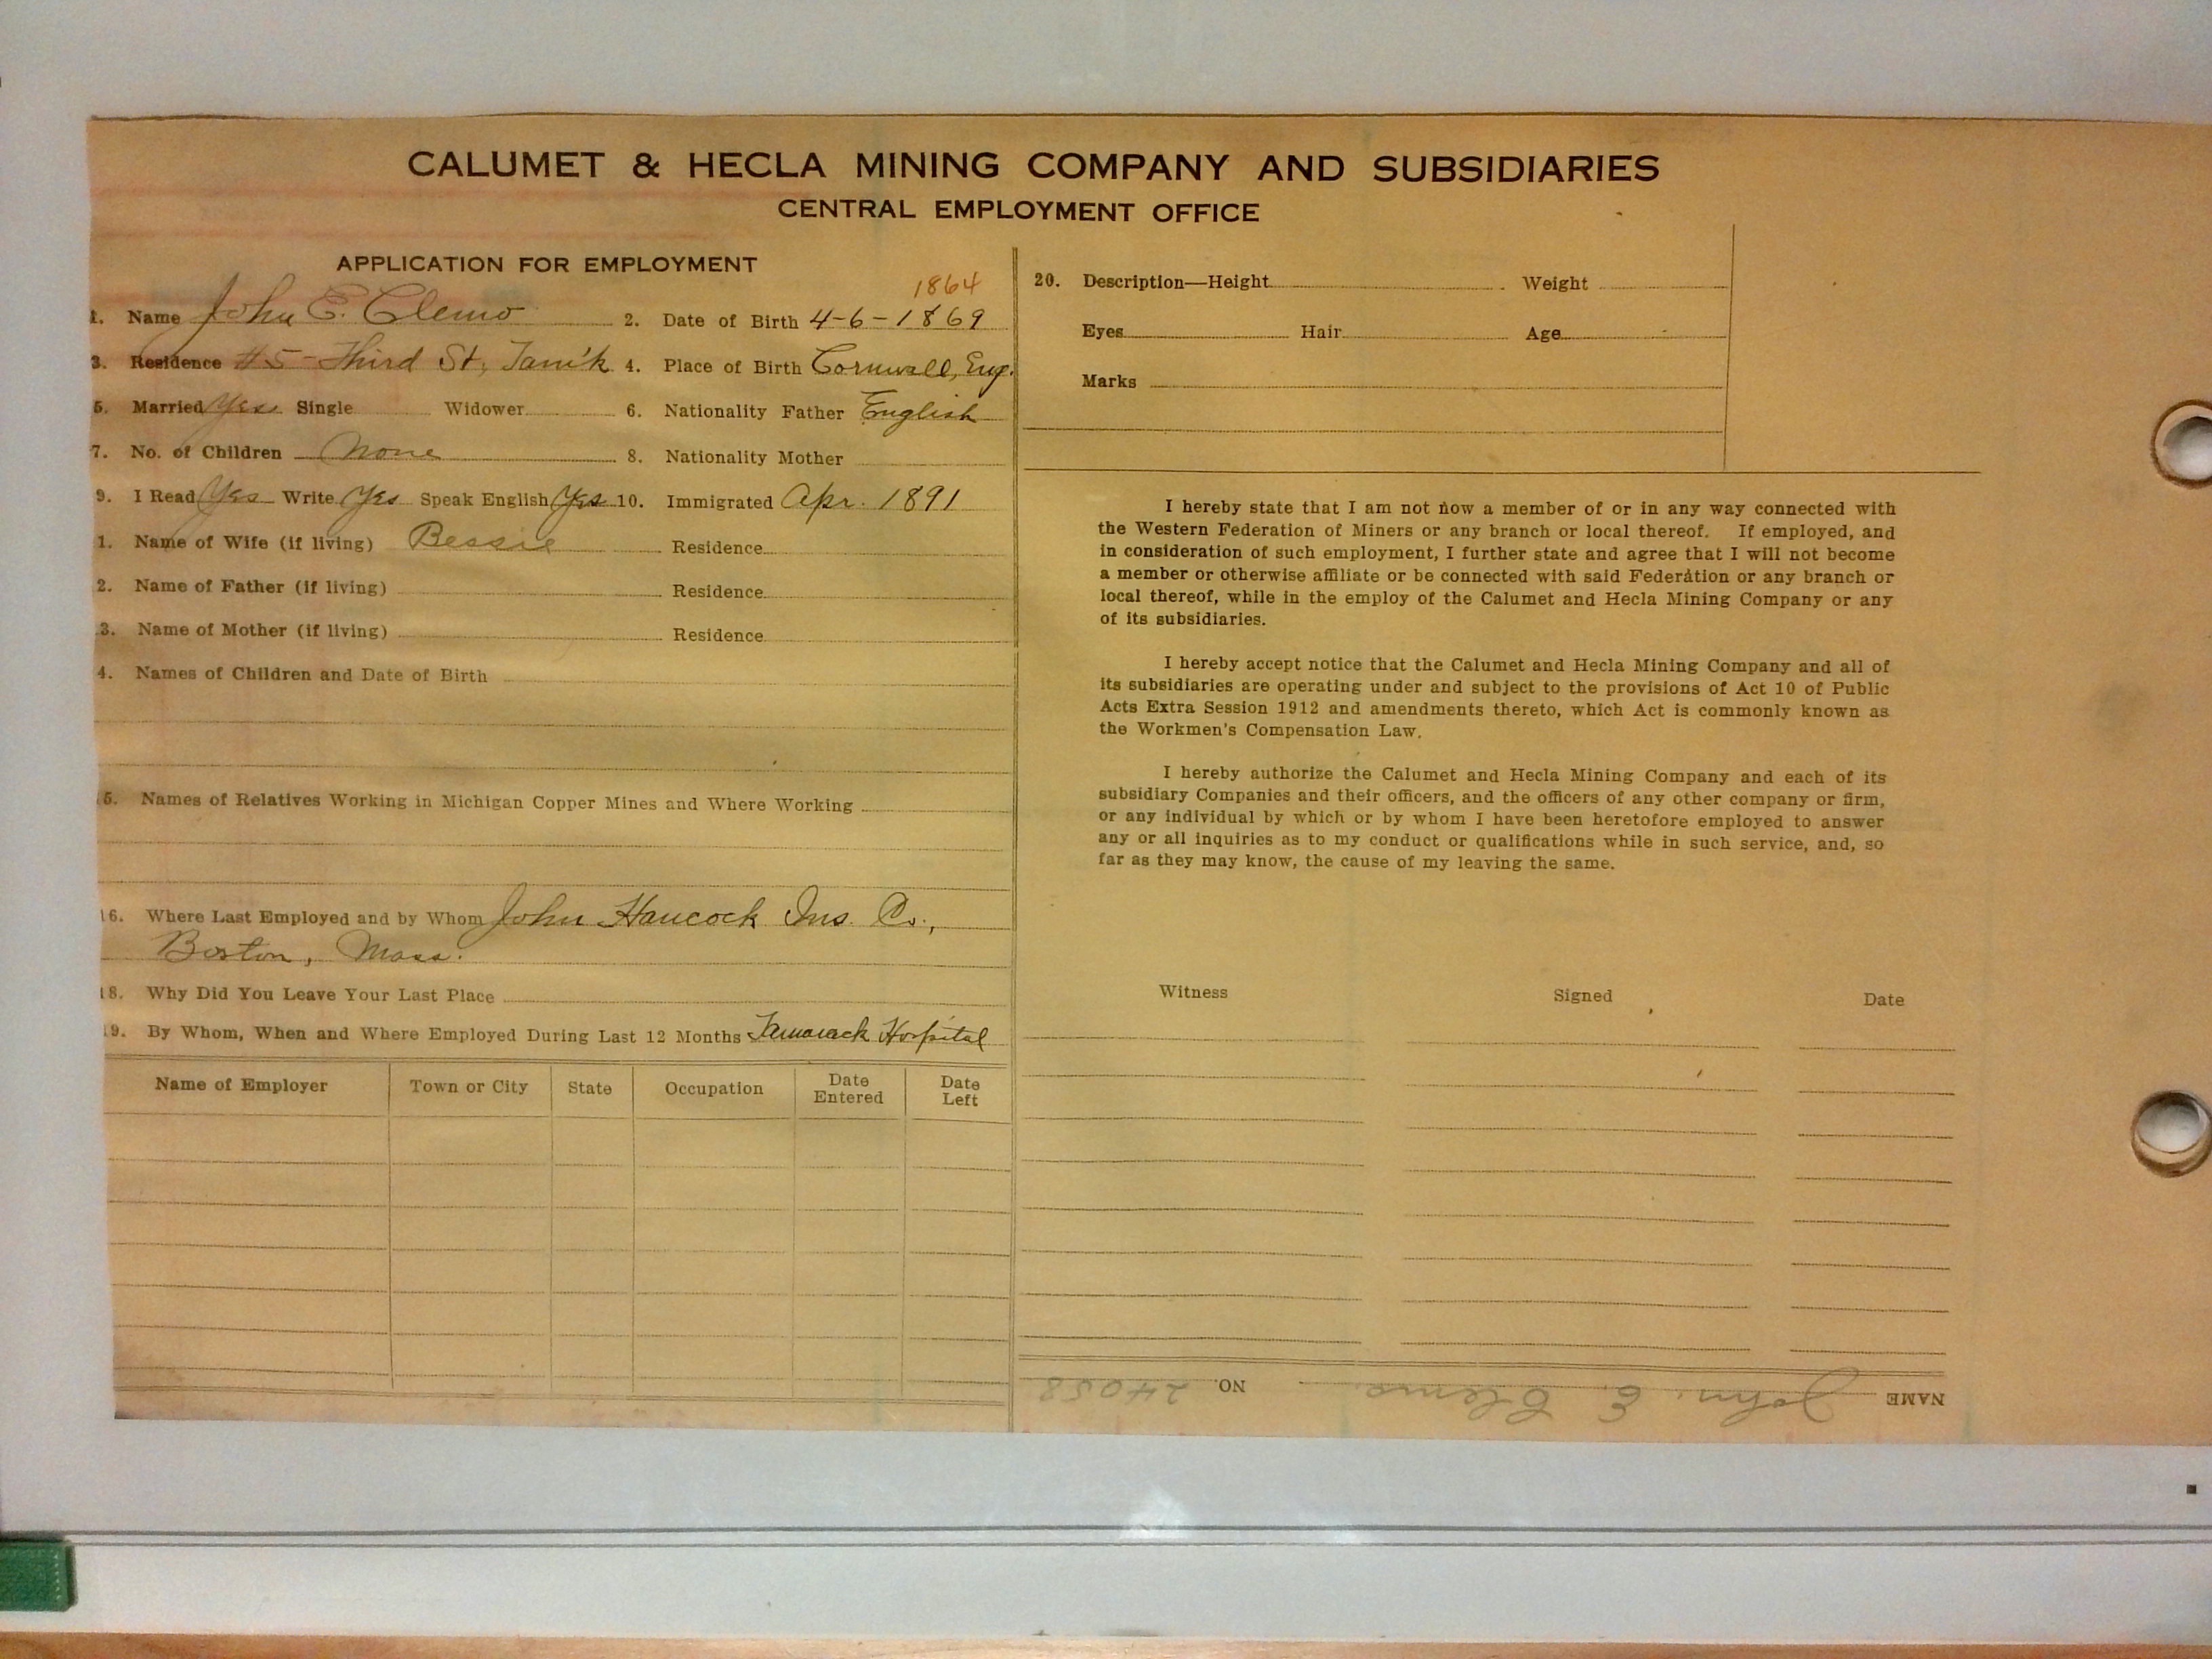 CALUMET & HECLA MINING COMPANY AND SUBSIDIARIES
CENTRAL EMPLOYMENT OFFICE
APPLICATION FOR EMPLOYMENT
1864
1. Name John E. Clemo 2. Date of Birth 4-6-1869
3. Residence #5 - Third St, Tam'k 4. Place of Birth Cornwall, Eng.
5. Married Yes Single Widower 6. Nationality Father English
7. No. of Children None 8. Nationality Mother
9. I Read Yes Write Yes Speak English Yes 10. Immigrated Apr. 1891
1. Name of Wife (if living) Bessie Residence
2. Name of Father (if living) Residence
3. Name of Mother (if living) Residence
4. Names of Children and Date of Birth
5. Names of Relatives Working in Michigan Copper Mines and Where Working
16. Where Last Employed and by Whom John Hancock Ins. Co.,
Boston, Mass.
18. Why Did You Leave Your Last Place
19. By Whom, When and Where Employed During Last 12 Months Tamarack Hospital
Name of Employer Town or City State Occupation Date Entered Date Left
20. Description—Height Weight
Eyes Hair Age
Marks
I hereby state that I am not now a member of or in any way connected with
the Western Federation of Miners or any branch or local thereof. If employed, and
in consideration of such employment, I further state and agree that I will not become
a member or otherwise affiliate or be connected with said Federation or any branch or
local thereof, while in the employ of the Calumet and Hecla Mining Company or any
of its subsidiaries.
I hereby accept notice that the Calumet and Hecla Mining Company and all of
its subsidiaries are operating under and subject to the provisions of Act 10 of Public
Acts Extra Session 1912 and amendments thereto, which Act is commonly known as
the Workmen's Compensation Law.
I hereby authorize the Calumet and Hecla Mining Company and each of its
subsidiary Companies and their officers, and the officers of any other company or firm,
or any individual by which or by whom I have been heretofore employed to answer
any or all inquiries as to my conduct or qualifications while in such service, and, so
far as they may know, the cause of my leaving the same.
Witness Signed Date
NAME John. E. Clemo. NO. 24058